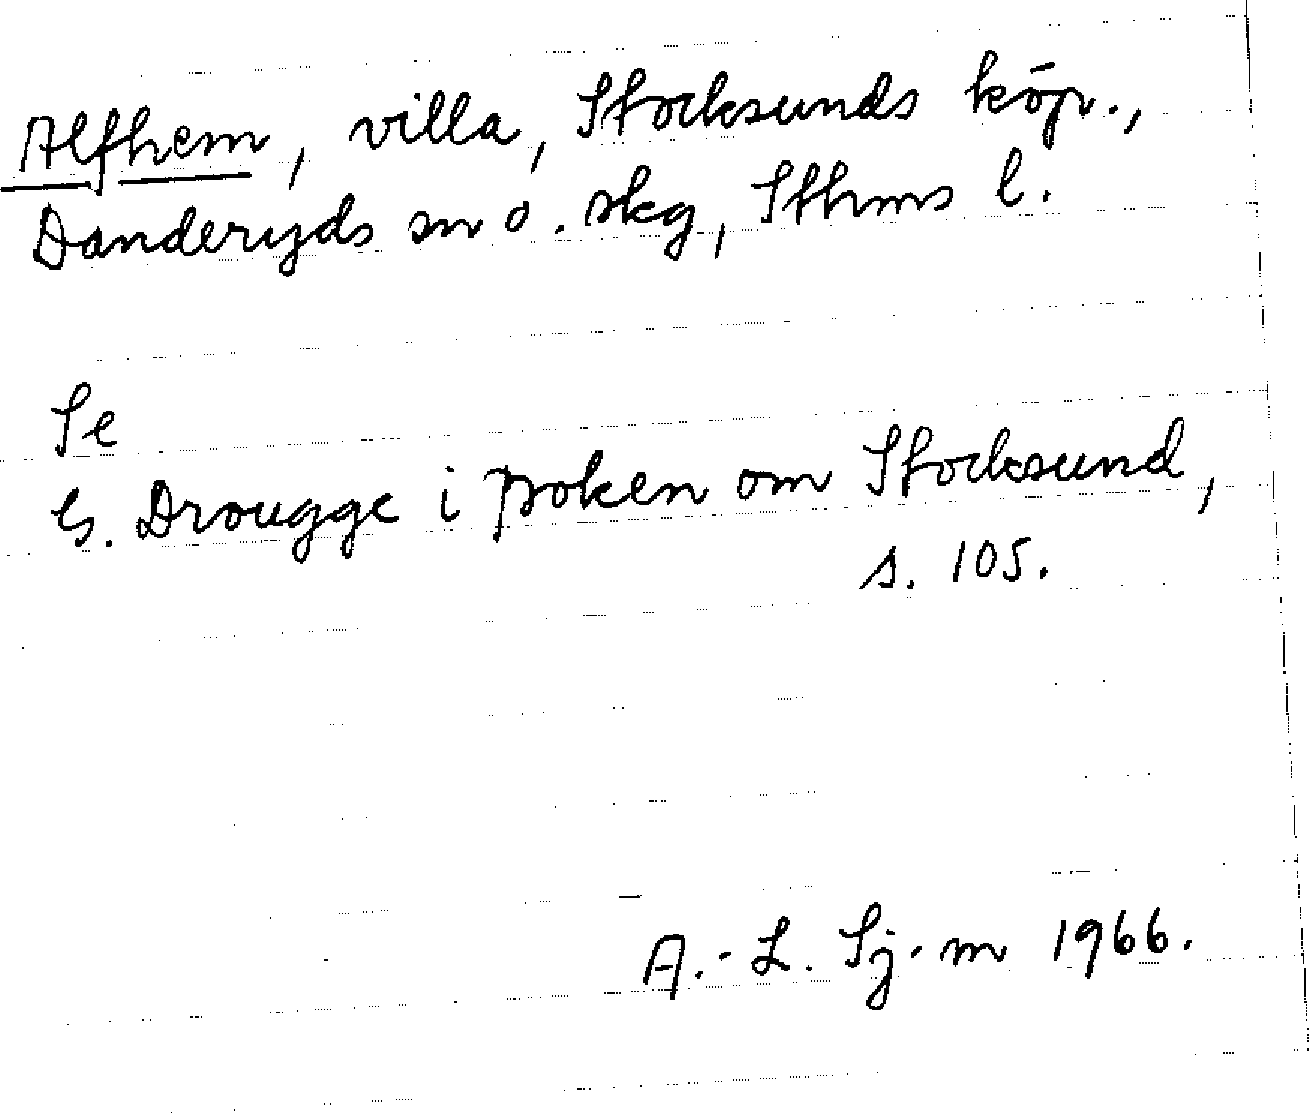 Alfhem, villa, Stocksunds köp.,
Danderyds sn o. skg, Sthms l.
Se
G. Drougge i Boken om Stocksund,
s. 105.
A.-L. Sj-m 1966.